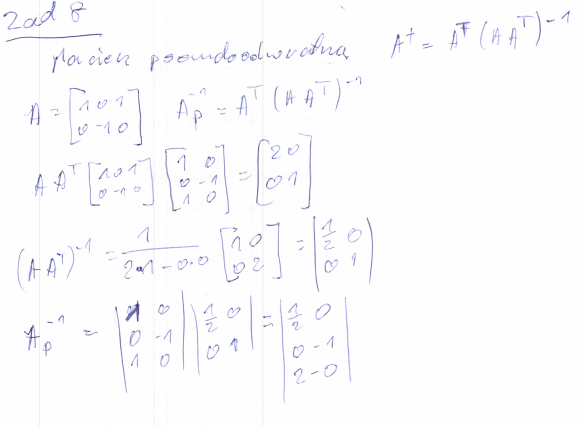 Zad 8
Macierz pseudoodwrotną A⁺ = Aᵀ (A Aᵀ)⁻¹
A = [1 0 1; 0 -1 0] Aₚ⁻¹ = Aᵀ (A Aᵀ)⁻¹
A Aᵀ [1 0 1; 0 -1 0] [1 0; 0 -1; 1 0] = [2 0; 0 1]
(A Aᵀ)⁻¹ = 1/(2·1-0·0) [1 0; 0 2] = [1/2 0; 0 1]
Aₚ⁻¹ = |1 0; 0 -1; 1 0| |1/2 0; 0 1| = |1/2 0; 0 -1; 2 - 0|